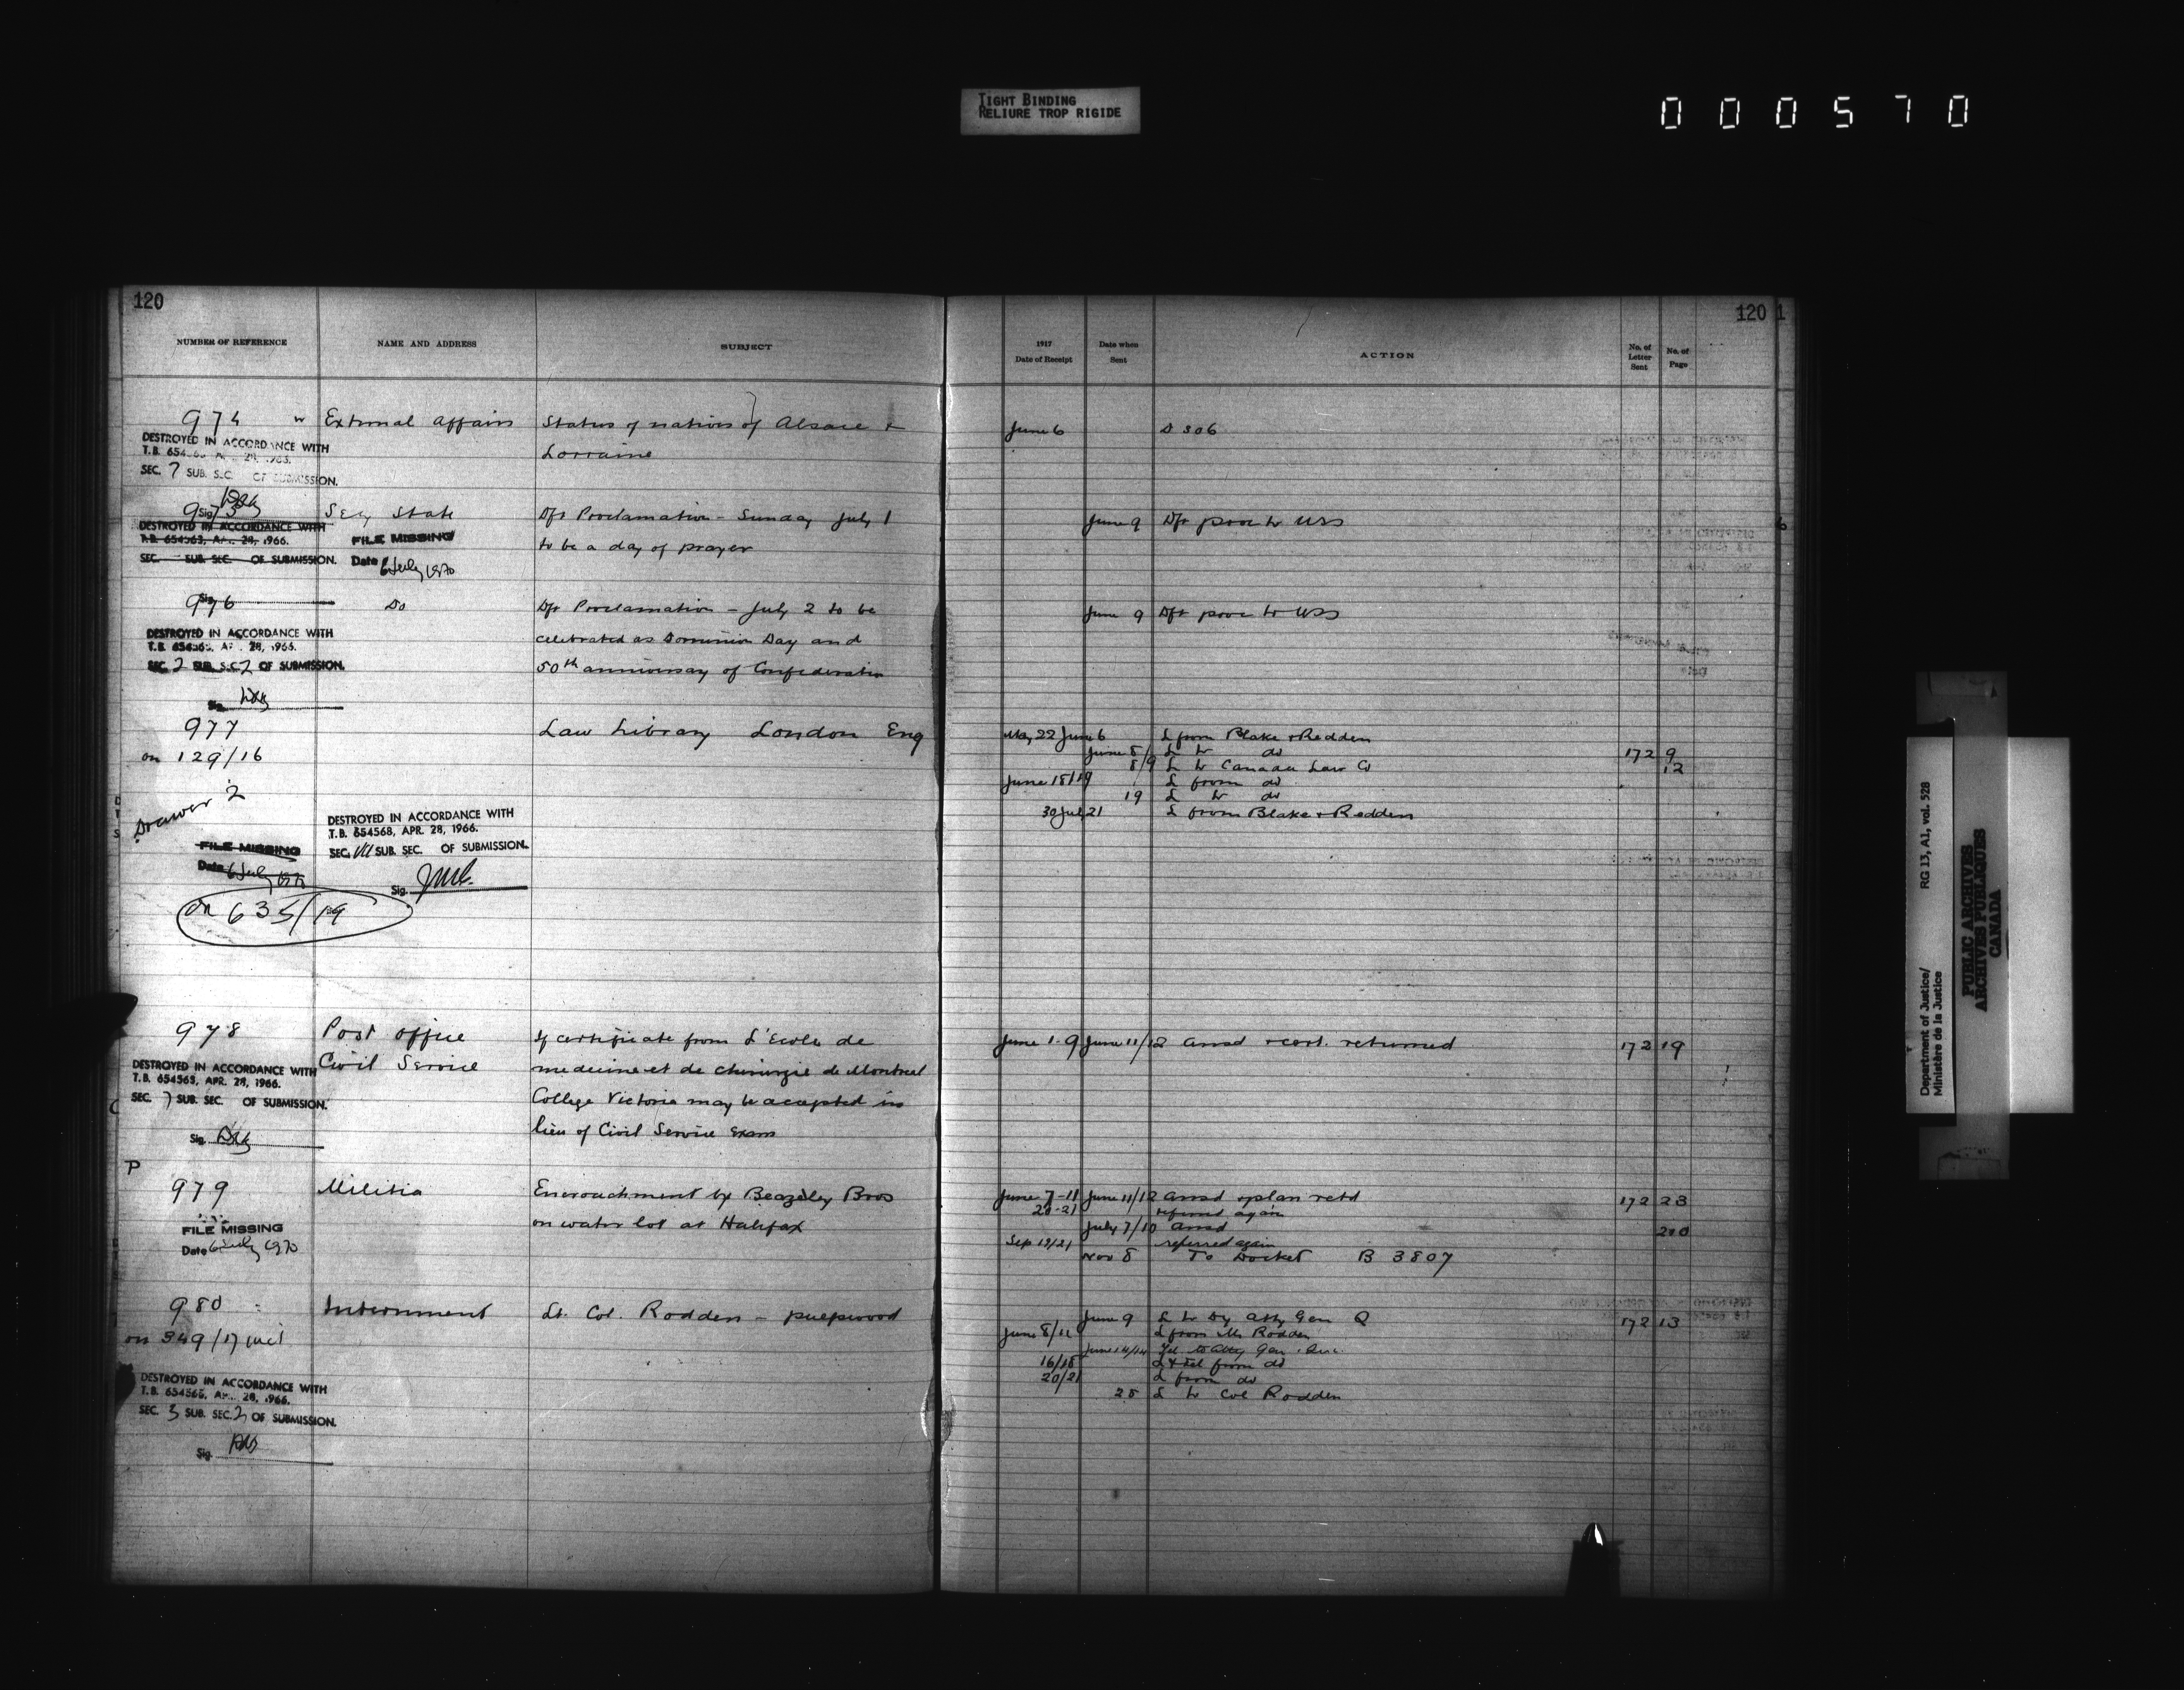 TIGHT BINDING
RELIURE TROP RIGIDE
000570
120
NUMBER OF REFERENCE
NAME AND ADDRESS
SUBJECT
974
External Affairs
Status of natives of Alsace &
Lorraine
DESTROYED IN ACCORDANCE WITH
SEC. 7 SUB. SEC. OF SUBMISSION.
975
Sig.
Secy State
Dft Proclamation - Sunday July 1
to be a day of prayer
DESTROYED IN ACCORDANCE WITH
T.B. 654563, APR. 28, 1966.
SEC. SUB. SEC. OF SUBMISSION.
FILE MISSING
Date 6 July 1970
976
Sig.
Do
Dft Proclamation - July 2 to be
celebrated as Dominion Day and
50th anniversary of Confederation
DESTROYED IN ACCORDANCE WITH
T.B. 654565, APR. 28, 1966.
SEC. 2 SUB. SEC. 2 OF SUBMISSION.
Sig.
977
on 129/16
Law Library London Eng
Drawer 2
FILE MISSING
Date 6 July 1970
DESTROYED IN ACCORDANCE WITH
T.B. 654568, APR. 28, 1966.
SEC. VII SUB. SEC. OF SUBMISSION.
Sig.
on 635/19
978
Post Office
Civil Service
If certificate from L'Ecole de
medecine et de chirurgie de Montreal
College Victoria may be accepted in
lieu of Civil Service Exam
DESTROYED IN ACCORDANCE WITH
T.B. 654565, APR. 28, 1966.
SEC. 7 SUB. SEC. OF SUBMISSION.
Sig.
P
979
Militia
Encroachment by Beazley Bros
on water lot at Halifax
FILE MISSING
Date 6 July 1970
980
on 349/17 incl
Internment
Lt. Col. Rodden - pulpwood
DESTROYED IN ACCORDANCE WITH
T.B. 654565, APR. 28, 1966.
SEC. 3 SUB. SEC. 2 OF SUBMISSION.
Sig.
120
1
1917
Date of Receipt
Date when
Sent
ACTION
No. of
Letter
Sent
No. of
Page
June 6 D 306
June 9 Dft proc to USS
June 9 Dft proc to USS
May 22 June 6 L from Blake & Redden
June 8 L to do 172 9
8/9 L to Canada Law Co 12
June 18/19 L from do
19 L to do
30 July 21 L from Blake & Redden
June 1-9 June 11/12 Ansd & cert. returned 172 19
June 7-11 June 11/12 Ansd & plan retd 172 23
20-21 referred again
July 7/10 Ansd 200
Sep 19/21 referred again
Nov 8 To Docket B 3807
June 9 L to Dy Atty Gen Q 172 13
June 8/11 L from Mr Rodden
June 14/14 Tel to Atty Gen Que.
16/18 L & tel from do
20/21 L from do
25 L to Col Rodden
RG 13, A1, vol. 528
Department of Justice/
Ministère de la Justice
PUBLIC ARCHIVES
ARCHIVES PUBLIQUES
CANADA